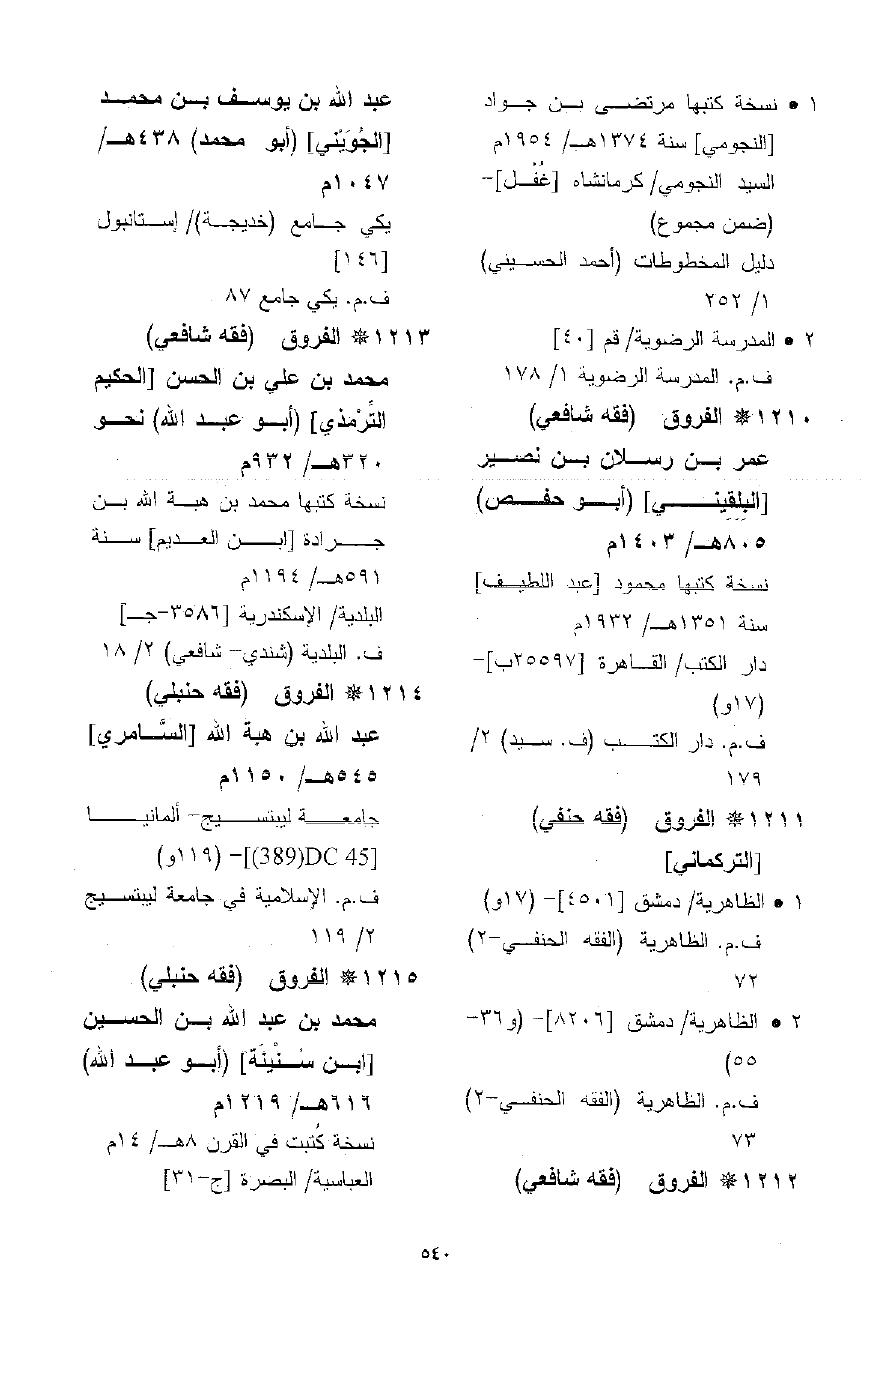 ١ • نسخة كتبها مرتضى بن جواد
[النجومي] سنة ١٣٧٤هـ/ ١٩٥٤م
السيد النجومي/ كرمانشاه [غُفْل]-
(ضمن مجموع)
دليل المخطوطات (أحمد الحسيني)
١/ ٢٥٢
٢ • المدرسة الرضوية/ قم [٤٠]
ف.م. المدرسة الرضوية ١/ ١٧٨
١٢١٠* الفروق (فقه شافعي)
عمر بن رسلان بن نصير
[البلقيني] (أبو حفص)
٨٠٥هـ/ ١٤٠٣م
نسخة كتبها محمود [عبد اللطيف]
سنة ١٣٥١هـ/ ١٩٣٢م
دار الكتب/ القاهرة [٢٥٥٩٧ب]-
(١٧و)
ف.م. دار الكتب (ف. سيد) ٢/
١٧٩
١٢١١* الفروق (فقه حنفي)
[التركماني]
١ • الظاهرية/ دمشق [٤٥٠١]- (١٧و)
ف.م. الظاهرية (الفقه الحنفي-٢)
٧٢
٢ • الظاهرية/ دمشق [٨٢٠٦]- (و٣٦-
٥٥)
ف.م. الظاهرية (الفقه الحنفي-٢)
٧٣
١٢١٢* الفروق (فقه شافعي)
عبد الله بن يوسف بن محمد
[الجُوَيْني] (أبو محمد) ٤٣٨هـ/
١٠٤٧م
يكي جامع (خديجة)/ إستانبول
[١٤٦]
ف.م. يكي جامع ٨٧
١٢١٣* الفروق (فقه شافعي)
محمد بن علي بن الحسن [الحكيم
التِّرْمذي] (أبو عبد الله) نحو
٣٢٠هـ/ ٩٣٢م
نسخة كتبها محمد بن هبة الله بن
جرادة [ابن العديم] سنة
٥٩١هـ/ ١١٩٤م
البلدية/ الإسكندرية [٣٥٨٦-جـ]
ف. البلدية (شندي- شافعي) ٢/ ١٨
١٢١٤* الفروق (فقه حنبلي)
عبد الله بن هبة الله [السَّامري]
٥٤٥هـ/ ١١٥٠م
جامعة ليبتسيج- ألمانيا
[DC 45(389)]- (١١٩و)
ف.م. الإسلامية في جامعة ليبتسيج
٢/ ١١٩
١٢١٥* الفروق (فقه حنبلي)
محمد بن عبد الله بن الحسين
[ابن سُنَيْنَة] (أبو عبد الله)
٦١٦هـ/ ١٢١٩م
نسخة كُتبت في القرن ٨هـ/ ١٤م
العباسية/ البصرة [ج-٣١]
٥٤٠